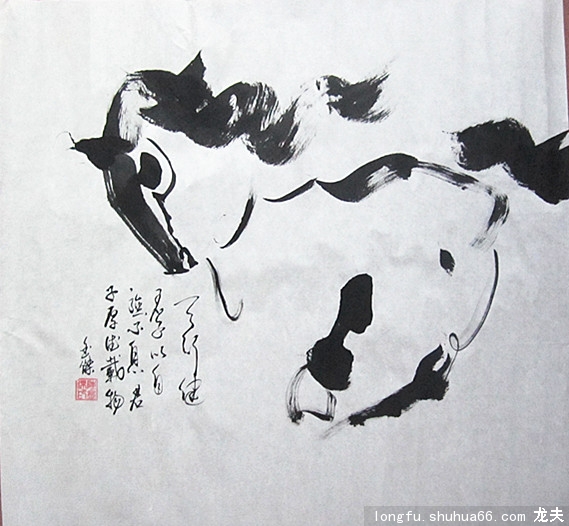 天行健
君子以自
强不息君
子厚德載物
玉傑
longfu.shuhua66.com 龙夫